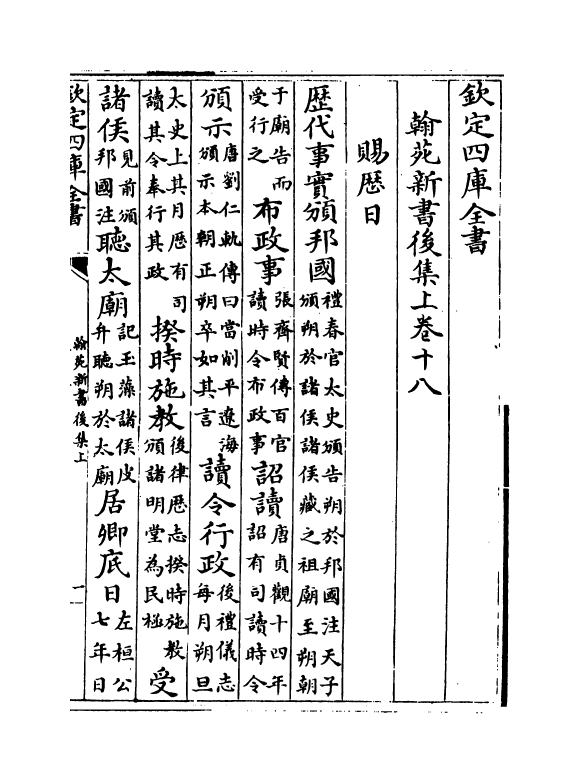 欽定四庫全書
翰苑新書後集上卷十八
賜歴日
歴代事實頒邦國禮春官太史頒告朔於邦國注天子頒朔於諸侯諸侯藏之祖廟至朔朝
于廟告而受行之布政事張齊賢傳百官讀時令布政事詔讀唐貞觀十四年詔有司讀時令
頒示唐劉仁軌傳曰當削平遼海頒示本朝正朔卒如其言讀令行政後禮儀志每月朔旦
太史上其月歴有司讀其令奉行其政揆時施教後律歴志揆時施教頒諸明堂為民極受
諸侯見前頒邦國注聽太廟記玉藻諸侯皮弁聽朔於太廟居卿底日左桓公七年日
欽定四庫全書
翰苑新書後集上
一